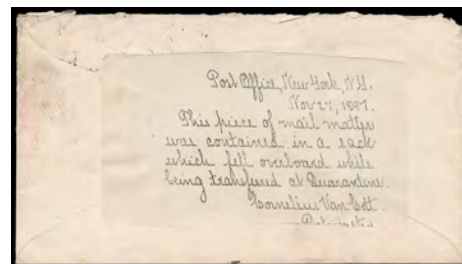 Post Office, New York, N.Y.
Nov 27, 1897.
This piece of mail matter
was contained in a sack
which fell overboard while
being transferred at Quarantine.
Cornelius Van Cott.